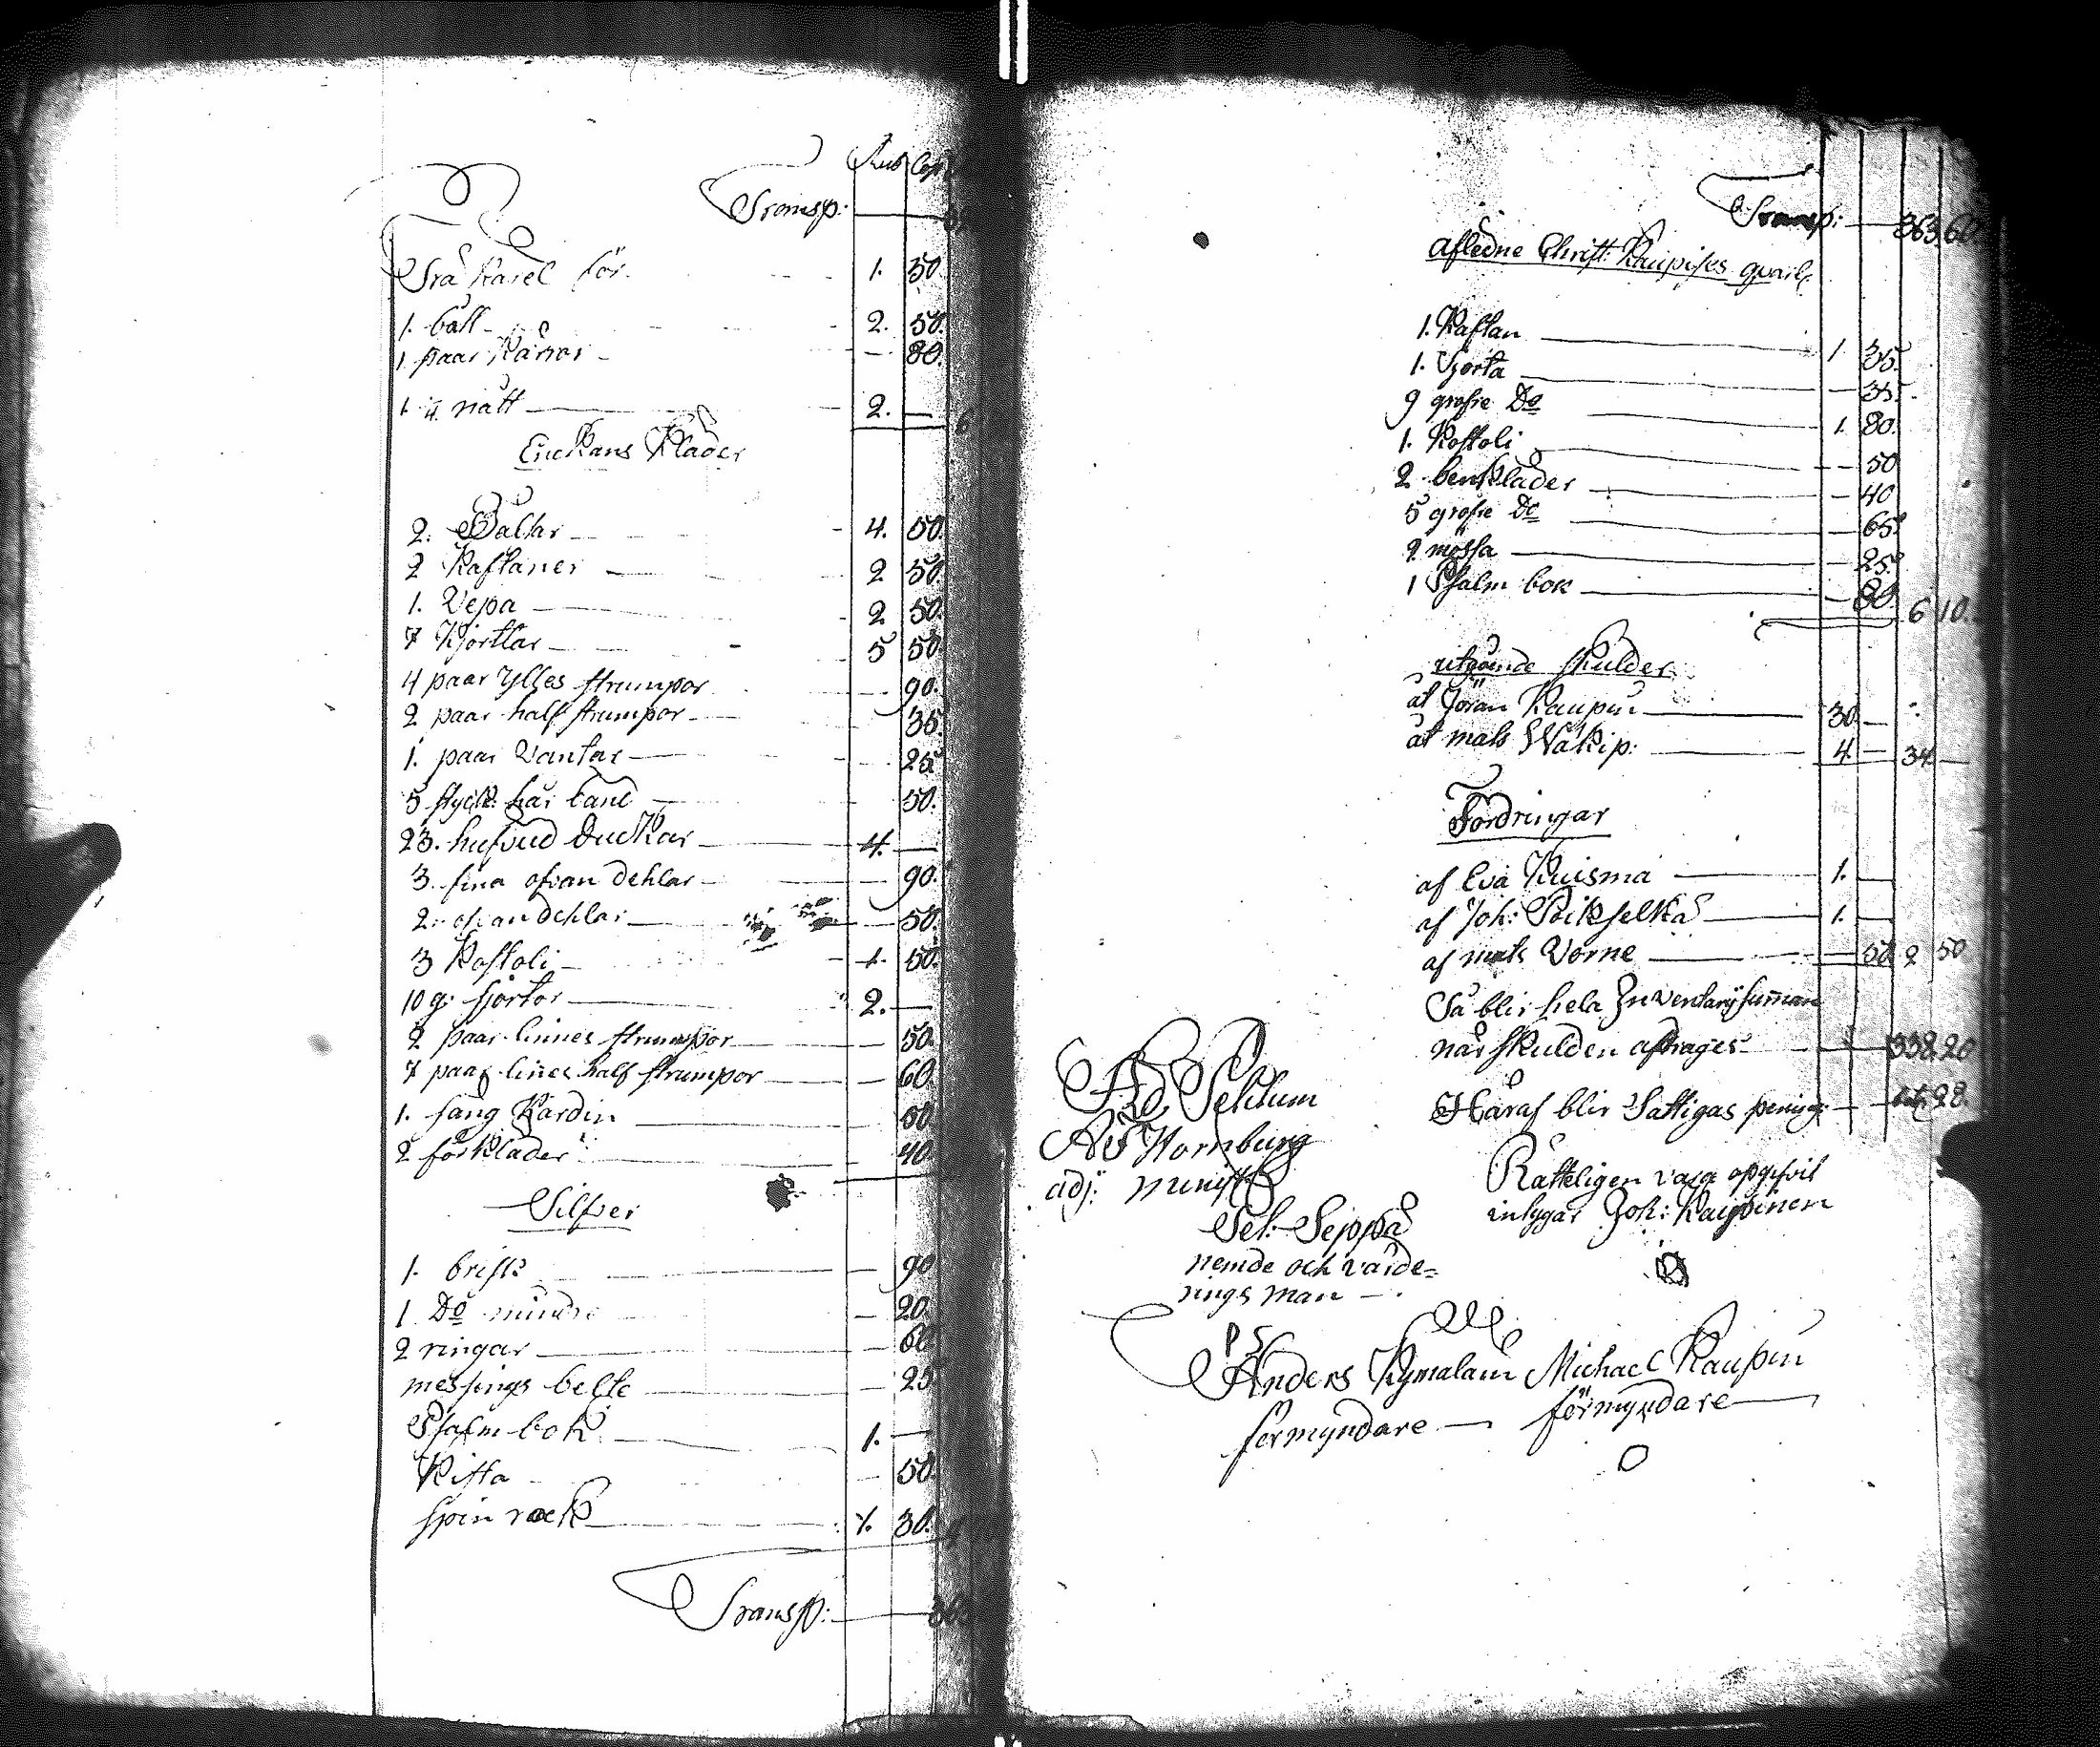 Rub Cop
Transp:
Trä Kärel för 1. 50.
1. båtl 2. 50.
1 paar Kärror 80.
1. u. nått 2.
Enckans Kläder
2. Bältar 4. 50.
2 Kaftaner 2 50.
1. Vepa 2 50.
7 Kjortlar 5 50.
4 paar ylles strumpor 90.
2 paar half strumpor 35.
1. paar Vantar 25
5 styck: hår band 50.
23. hufvud duckar 4.
3. fina ofvan dehlar 90.
2. ofvan dehlar 50.
3 Kostoli 1. 50.
10 g: sjortor 2.
2 paar linnes strumpor 50.
7 paar linnes half strumpor 60
1. säng Kardin 50.
2 förkläder 40
Silfver
1. brisk 90
1 Do mindre 20.
2 ringar 60
messings belte 25
Psalm bok 1.
Kista 50.
spin rock 1. 30.
Transp:
Transp: 363 60
Afledne Christ: Kaupises qvarl:
1. Kaftan 1 35.
1. Sjorta 35.
9 grofre Do 1. 80.
1. Kostoli 50
2 benkläder 40
5 grofre Do 65.
2 mössa 25.
1 Psalm bok 80. 6 10.
utgående skulder
åt Jöran Kaupin 30
åt mats Wäkip: 4 34
Fordringar
af Eva Kuisma 1.
af Joh: Pitkselkä 1.
af mats Vorne 50 2 50
Så blir hela Inventarij sum̄an
när skulden aftrages 338 20
Häraf blir Fattigas pening: 28.
Rätteligen vara opgifvit
intygar Joh: Kaupinen
Ad Sehlum
Hornburg
adj: minist
Sel: Seppä
nemde och värde=
rings man
PS
Anders Kymalain Michael Kaupin
förmyndare förmyndare